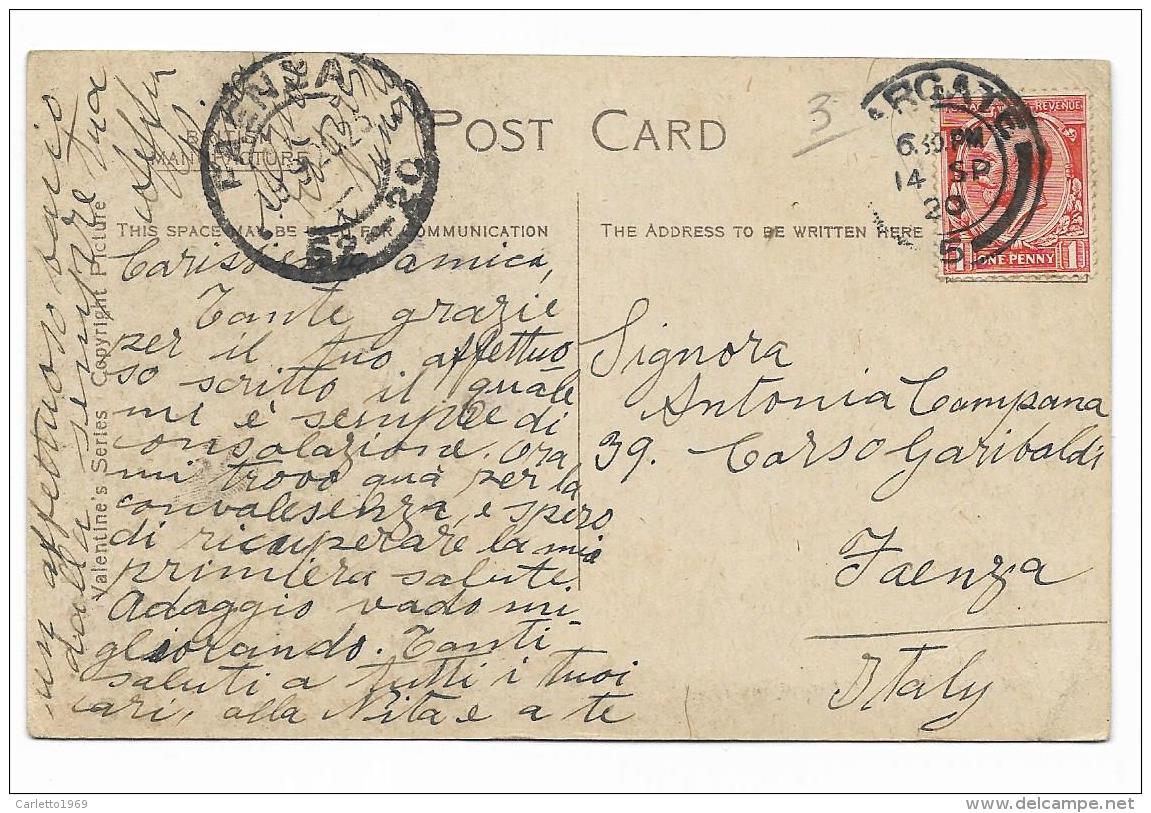 POST CARD
3
BRITISH
MANUFACTURE
THIS SPACE MAY BE USED FOR COMMUNICATION
THE ADDRESS TO BE WRITTEN HERE
FAENZA
20
ARGATE
6.30 PM
14 SP
20
5
REVENUE
1 ONE PENNY 1
Carissima amica,
Tante grazie
per il tuo affettuo
so scritto il quale
mi è sempre di
consolazione. Ora
mi trovo quà per la
convalesenza, e spero
di ricuperare la mia
primiera salute.
Adaggio vado mi
gliorando. Tanti
saluti a tutti i tuoi
cari, alla Nita e a te
un affettuoso bacio
dalla sempre tua
Signora
Antonia Campana
39. Corso Garibaldi
Faenza
Italy
Valentine's Series Copyright Picture
Carletto1969
delcampe.net